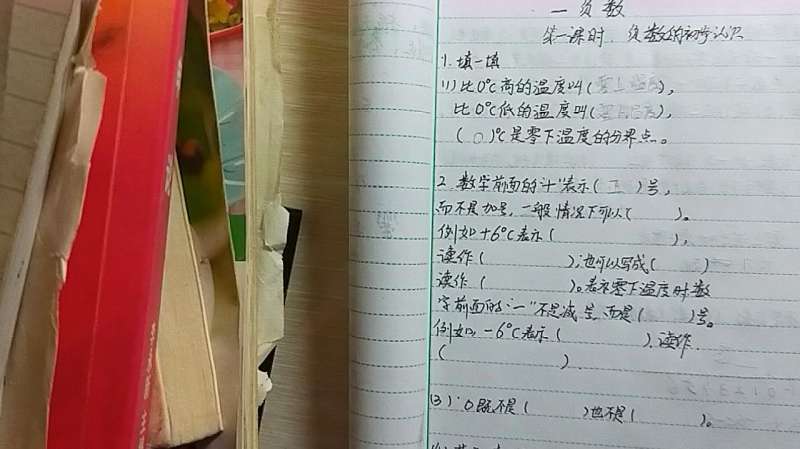 一 负数
第一课时 负数的初步认识
1. 填一填
(1) 比0℃高的温度叫(零上温度),
比0℃低的温度叫(零下温度),
( 0 )℃是零下温度的分界点。
2. 数字前面的"+"表示( 正 )号,
而不是加号,一般情况下可以( )。
例如+6℃表示( ),
读作( );也可以写成( )
读作( )。表示零下温度时数
字前面的"一"不是减号,而是( )号。
例如,-6℃表示( ),读作
( )
(3) 0既不是( )也不是( )。